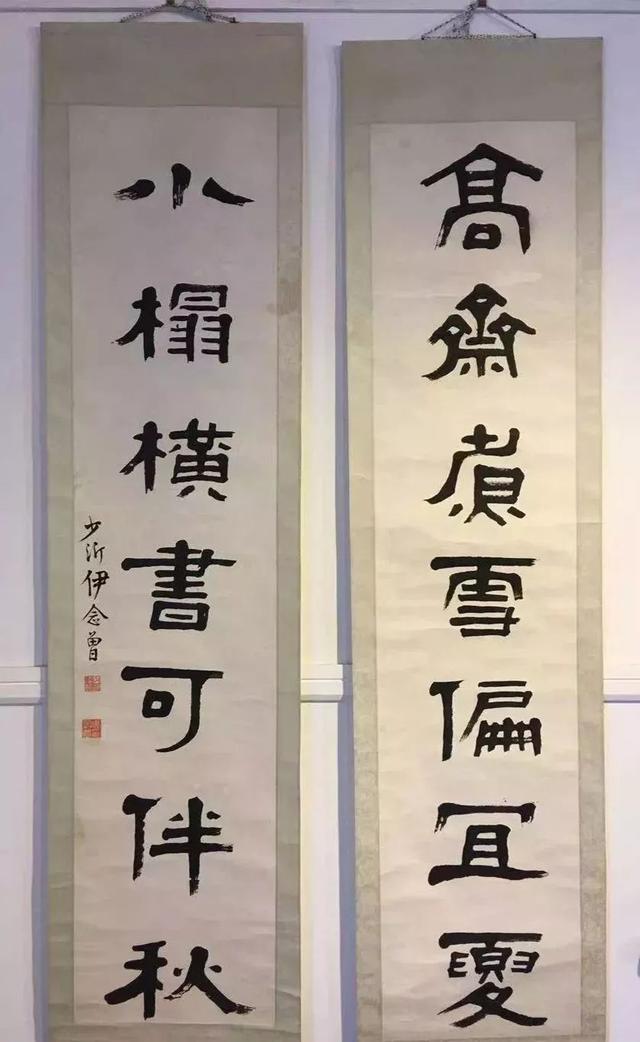 高齋煮雪偏宜夏
小榻橫書可伴秋
少沂伊念曾